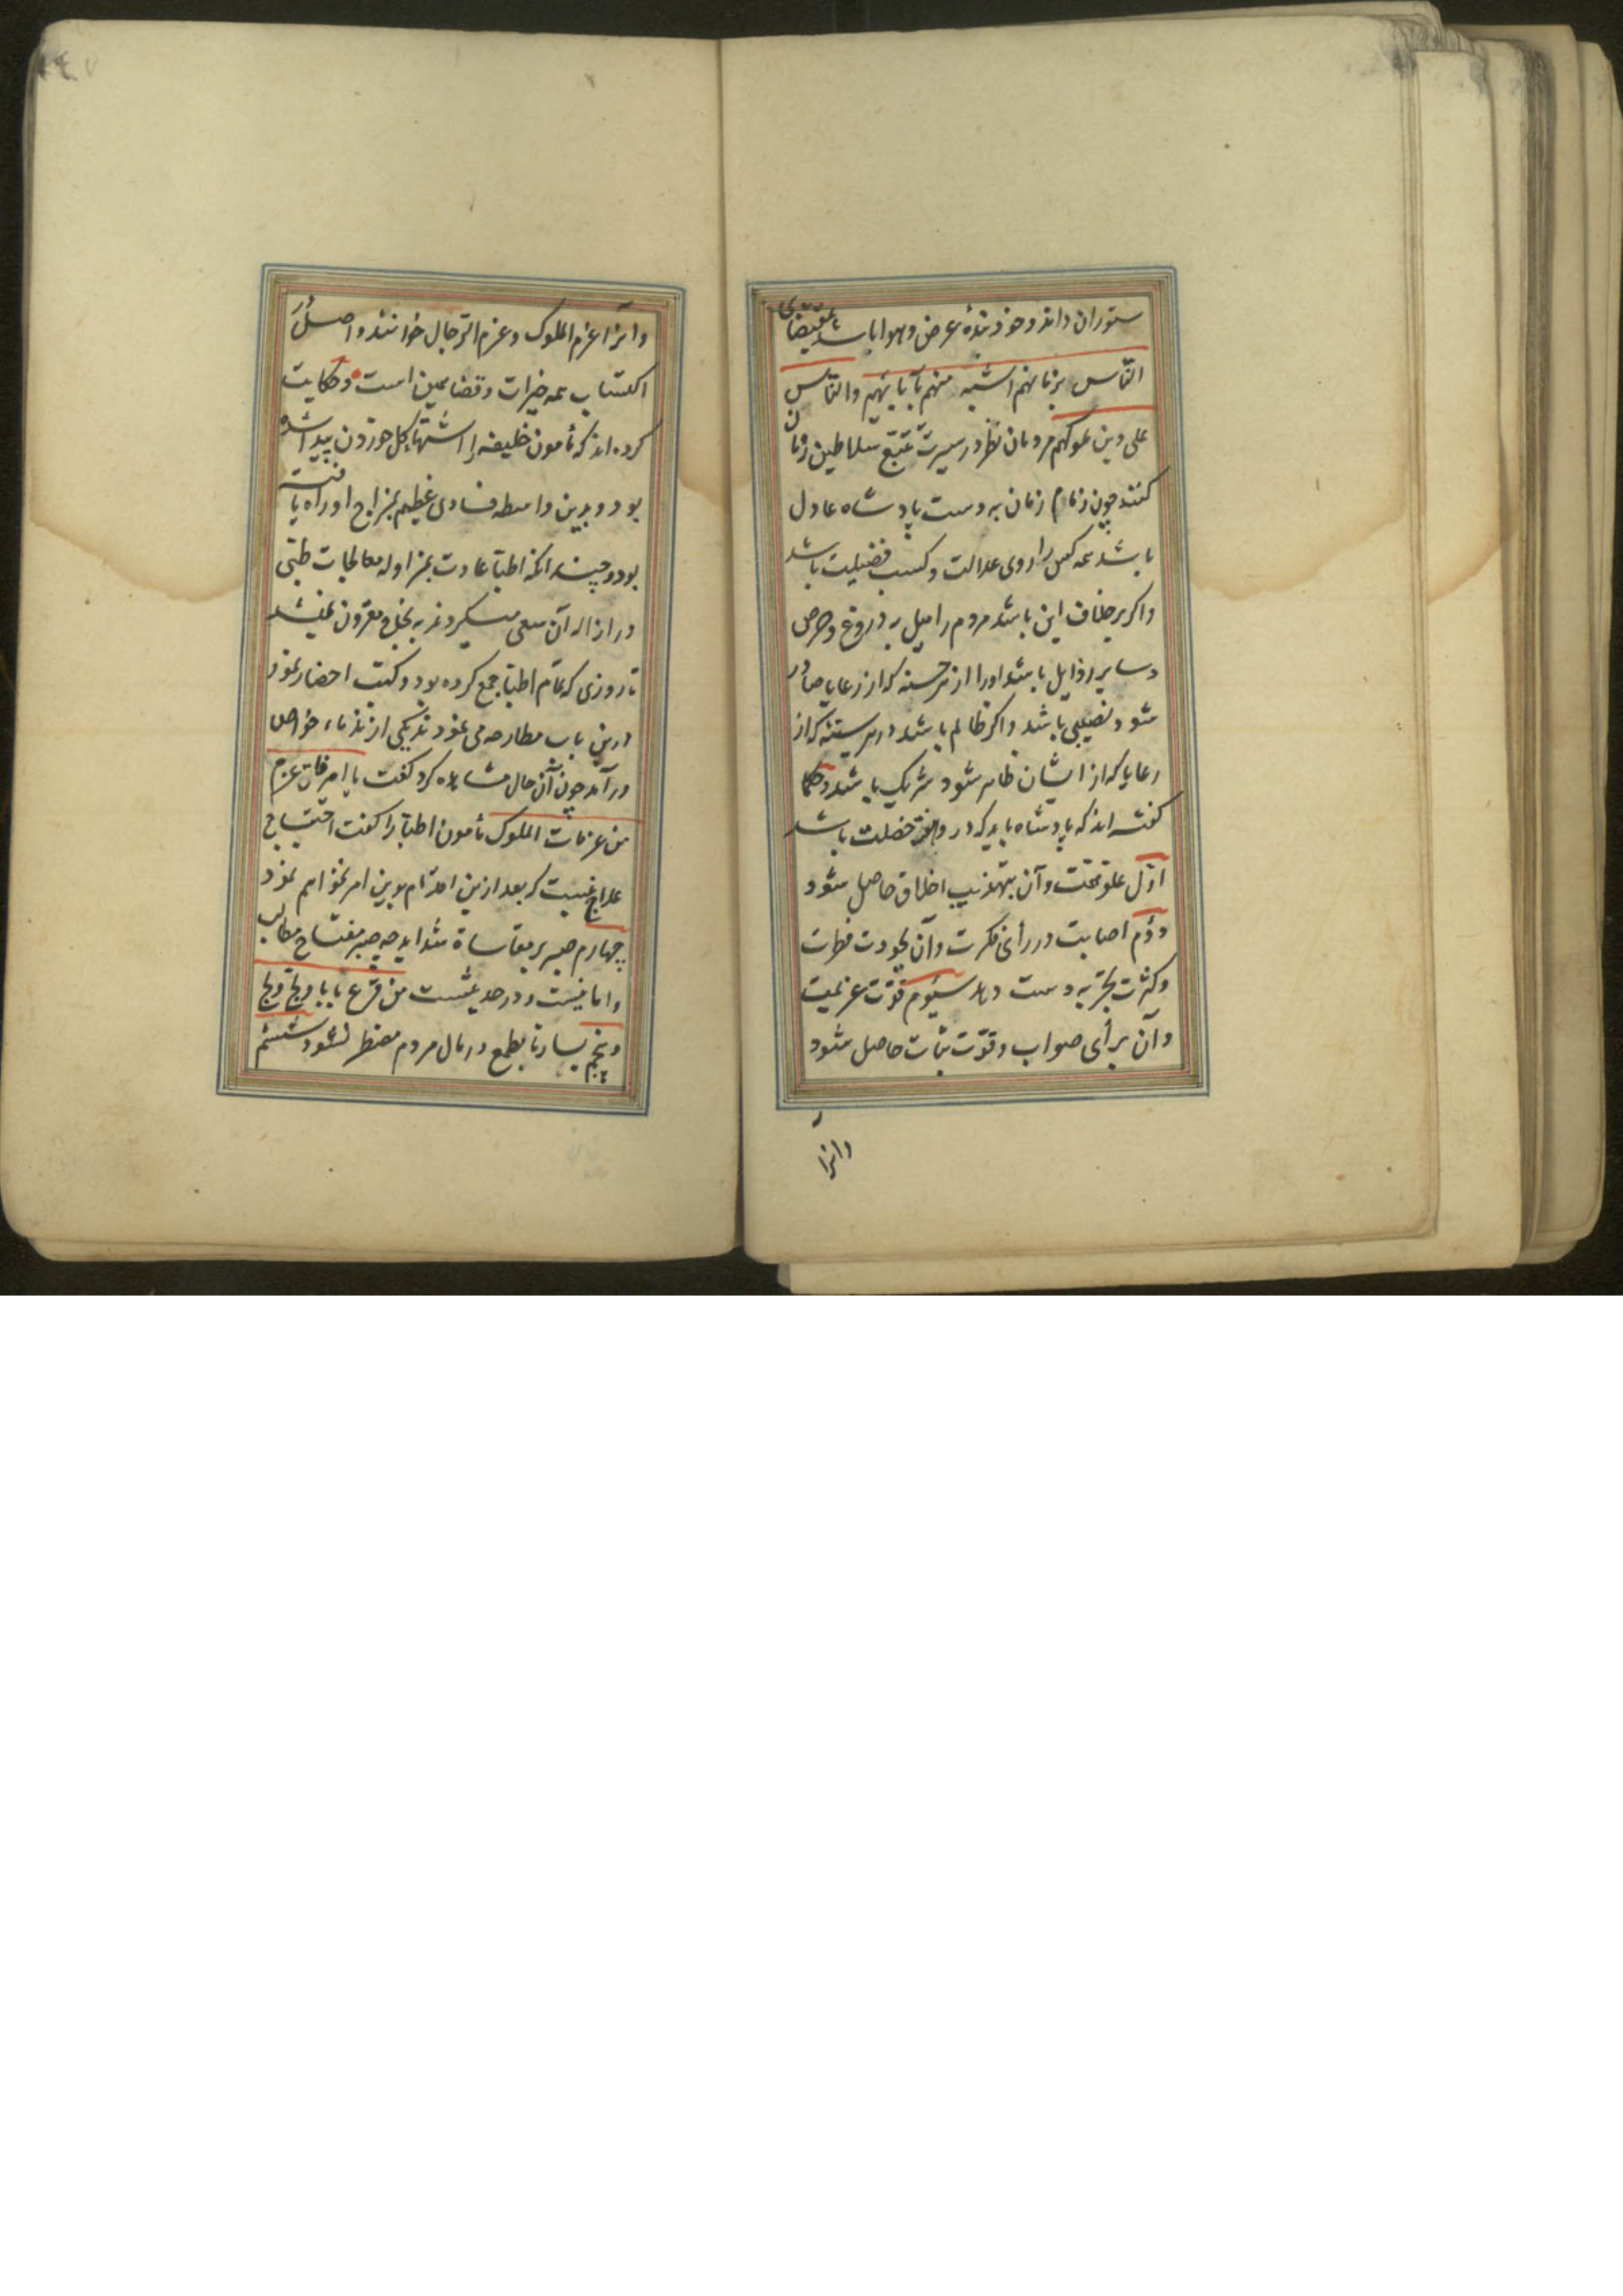 ستوران داند و خود بندهٔ عرض و هوا باشد بمقتضای
النّاس بزمانهم اشبه منهم بآبائهم والنّاس
علی دین ملوکهم مردمان نظر در سیرت تتبّع سلاطین زمان
کنند چون زمام زمان به دست پادشاه عادل
باشد همه کس را روی عدالت و کسب فضیلت باشد
واکر بر خلاف این باشد مردم را میل به دروغ و حرص
و سایر رذایل باشد او را از هر حسنه که از رعایا صادر
شود نصیبی باشد و اکر ظالم باشد در هر سیئه که از
رعایا که از ایشان ظاهر شود شریک باشد و حکما
کفته اند که پادشاه باید که در و هفت خصلت باشد
اوّل علو همّت و آن بتهذیب اخلاق حاصل شود
دوّم اصابت در رأی فکرت و آن بجودت فطرت
و کثرت تجربه دست دهد سیّوم قوّت عزیمت
و آن برأی صواب و قوّت ثبات حاصل شود
وانرا
وآنرا عزم الملوک و عزم الرّجال خوانند و اصل در
اکتساب همه خیرات و فضایل همین است و حکایت
کرده اند که مأمون خلیفه را اشتهاء کل خوردن پیدا شده
بود و بدین واسطه فسادی عظیم بمزاج او راه یافته
بود و چندانکه اطبّا عادت بمزاوله معالجات طبّی
در ازاله آن سعی میکردند به نجاح مقرون نمیشد
تا روزی که تمام اطبّا جمع کرده بود و کتب احضار نمود
درین باب مطارحه می نمودند یکی از ندماء خواص
درآمد چون آن حال مشاهده کرد کفت یا امیر فاین عزم
من عزمات الملوک مأمون اطبّا را کفت احتیاج
علاج نیست که بعد ازین اقدام بدین امر نخواهم نمود
چهارم صبر بر مقاساة شداید چه صبر مفتاح مطالب
و امانیست و در حدیثست من قرع بابا و لجّ ولج
و پنجم یسار تا بطمع در مال مردم مضطر نشود ششم